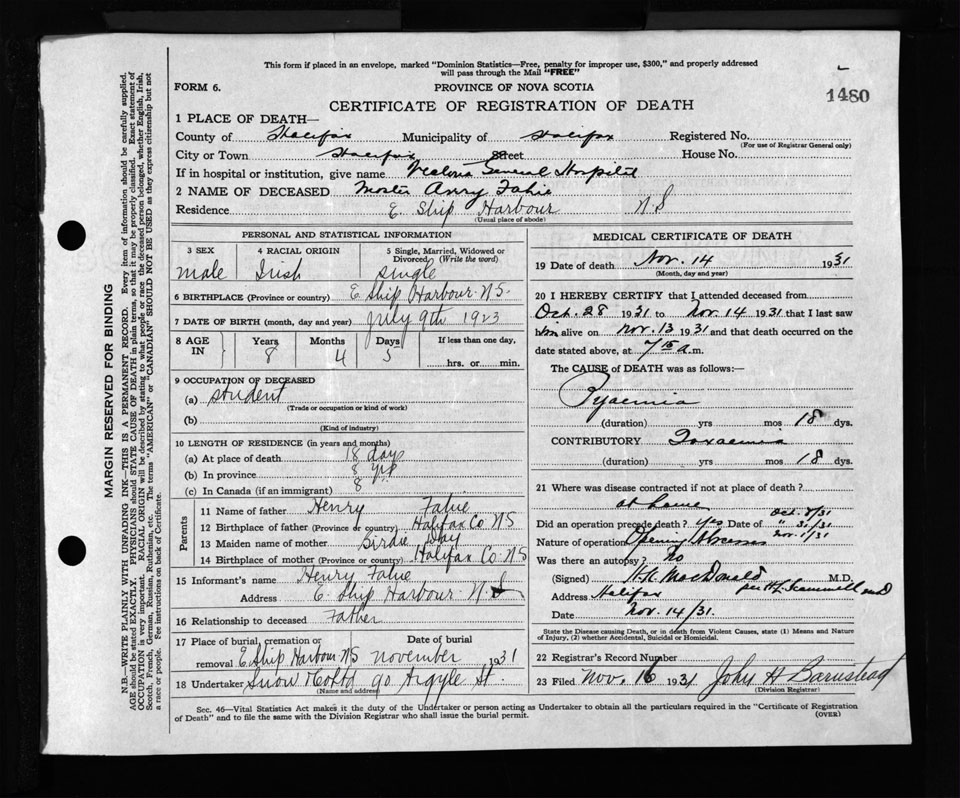 This form if placed in an envelope, marked "Dominion Statistics—Free, penalty for improper use, $300," and properly addressed
will pass through the Mail "FREE"
FORM 6.
PROVINCE OF NOVA SCOTIA
1480
CERTIFICATE OF REGISTRATION OF DEATH
1 PLACE OF DEATH—
County of Halifax Municipality of Halifax Registered No.
(For use of Registrar General only)
City or Town Halifax Street House No.
If in hospital or institution, give name Victoria General Hospital
2 NAME OF DECEASED Avery Fahie
Residence E. Ship Harbour N S
(Usual place of abode)
PERSONAL AND STATISTICAL INFORMATION
3 SEX 4 RACIAL ORIGIN 5 Single, Married, Widowed or
Divorced (Write the word)
male Irish single
6 BIRTHPLACE (Province or country) E. Ship Harbour N.S.
7 DATE OF BIRTH (month, day and year) July 9th 1923
8 AGE IN Years Months Days If less than one day,
8 4 5 hrs. or min.
9 OCCUPATION OF DECEASED
(a) Student
(Trade or occupation or kind of work)
(b)
(Kind of industry)
10 LENGTH OF RESIDENCE (in years and months)
(a) At place of death 18 days
(b) In province 8 yrs
(c) In Canada (if an immigrant) 8
Parents
11 Name of father Henry Fahie
12 Birthplace of father (Province or country) Halifax Co N S
13 Maiden name of mother Birdie Day
14 Birthplace of mother (Province or country) Halifax Co N S
15 Informant's name Henry Fahie
Address E. Ship Harbour N.S
16 Relationship to deceased Father
17 Place of burial, cremation or Date of burial
removal E. Ship Harbour N S november 1931
18 Undertaker Snow & Co Ltd 90 Argyle St.
(Name and address)
MEDICAL CERTIFICATE OF DEATH
19 Date of death Nov. 14 1931
(Month, day and year)
20 I HEREBY CERTIFY that I attended deceased from
Oct. 28 1931 to Nov. 14 1931 that I last saw
him alive on Nov. 13 1931 and that death occurred on the
date stated above, at 7 15 a.m.
The CAUSE of DEATH was as follows:—
Pyaemia
(duration) yrs mos 18 dys.
CONTRIBUTORY Toxaemia
(duration) yrs mos 18 dys.
21 Where was disease contracted if not at place of death?
at home
Did an operation precede death? yes Date of " 31/31
Nature of operation Opening Abscesses Nov. 1/31
Was there an autopsy? No
(Signed) MacDonald M.D.
Address Halifax per H L Scammell md
Date Nov. 14/31.
State the Disease causing Death, or in death from Violent Causes, state (1) Means and Nature
of Injury, (2) whether Accidental, Suicidal or Homicidal.
22 Registrar's Record Number
23 Filed Nov. 16 1931 John H Barnstead
(Division Registrar)
Sec. 46—Vital Statistics Act makes it the duty of the Undertaker or person acting as Undertaker to obtain all the particulars required in the "Certificate of Registration
of Death" and to file the same with the Division Registrar who shall issue the burial permit.
(OVER)
MARGIN RESERVED FOR BINDING
N.B—WRITE PLAINLY WITH UNFADING INK—THIS IS A PERMANENT RECORD. Every item of information should be carefully supplied.
AGE should be stated EXACTLY. PHYSICIANS should STATE CAUSE OF DEATH in plain terms, so that it may be properly classified. Exact statement of
OCCUPATION is very important. RACIAL ORIGIN will be described by stating to what people or race the deceased person belonged, whether English, Irish,
Scotch, French, German, Russian, Ruthenian, etc. The terms "AMERICAN" or "CANADIAN" SHOULD NOT BE USED as they express citizenship but not
a race or people. See instructions on back of Certificate.